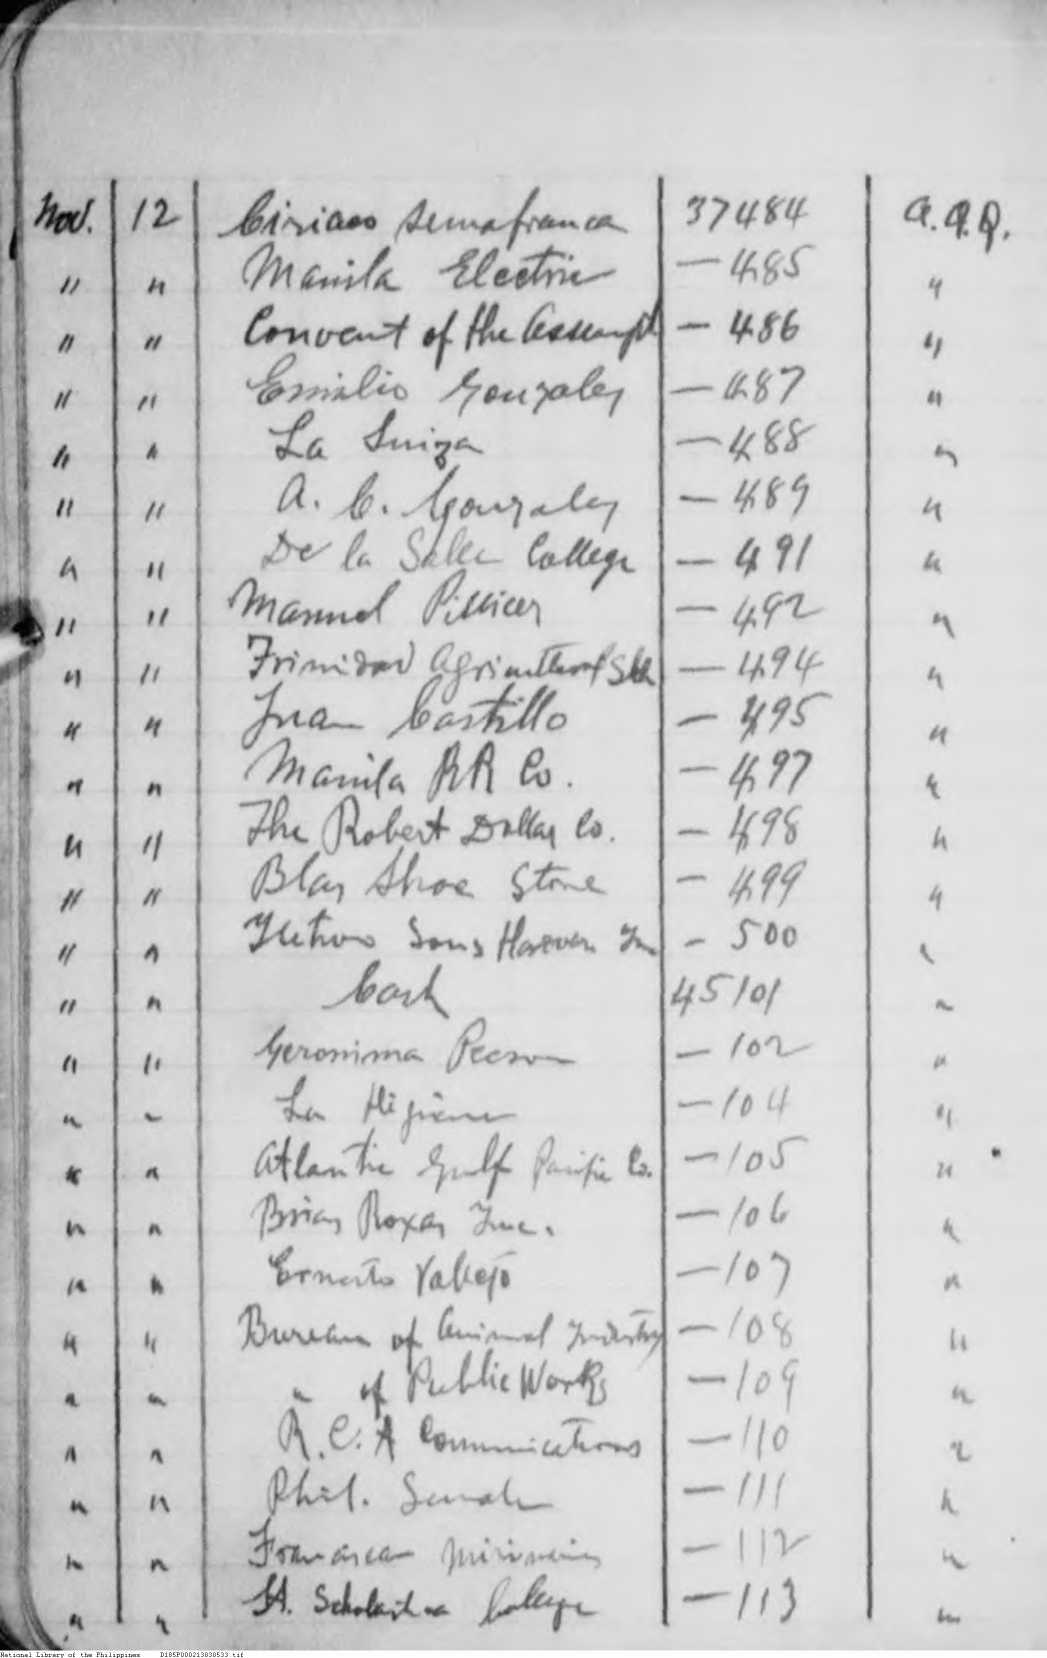 Nov. 12 Ciriaco Semafranca 37484 A.A.Q.
" " Manila Electric — 485 "
" " Convent of the Assumpt — 486 "
" " Emilio Gonzales — 487 "
" " La Suiza — 488 "
" " A. C. Gonzales — 489 "
" " De la Salle College — 491 "
" " Manuel Pellicer — 492 "
" " Trinidad Agricultural Sch — 494 "
" " Juan Castillo — 495 "
" " Manila RR Co. — 497 "
" " The Robert Dollar Co. — 498 "
" " Blas Shoe Store — 499 "
" " Sons Inc — 500 "
" " Cash 45101 "
" " Geronima Pecson — 102 "
" " La Higiene — 104 "
" " Atlantic Gulf Pacific Co. — 105 "
" " Brias Roxas Inc. — 106 "
" " Ernesto Vallejo — 107 "
" " Bureau of Animal Industry — 108 "
" " " of Public Works — 109 "
" " R.C.A Communications — 110 "
" " Phil. Senate — 111 "
" " Franciscan Missionaries — 112 "
" " St. Scholastica College — 113 "
National Library of the Philippines D185P000213838533.tif